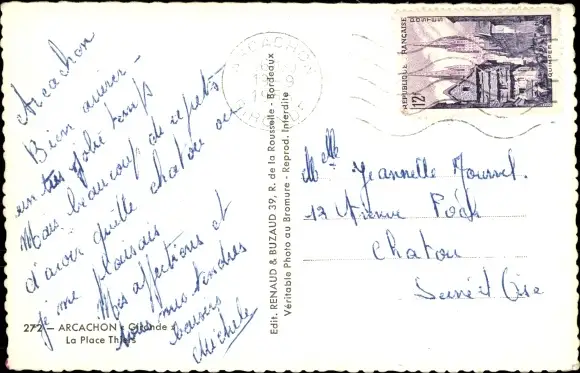 Arcachon
Bien arrivée
un très jolie temps
Mais beaucoup de regrets
d'avoir quitté chatou ou
je me plaisais
Mes affections et
tous mes tendres
baisers
Michele
272 — ARCACHON « Gironde »
La Place Thiers
Edit. RENAUD & BUZAUD 39, R. de la Rousselle - Bordeaux
Véritable Photo au Bromure - Reprod. Interdite
ARCACHON
REPUBLIQUE FRANÇAISE
POSTES
12F
QUIMPER
Melle Jeannelle
12
Chatou
Seine et Oise